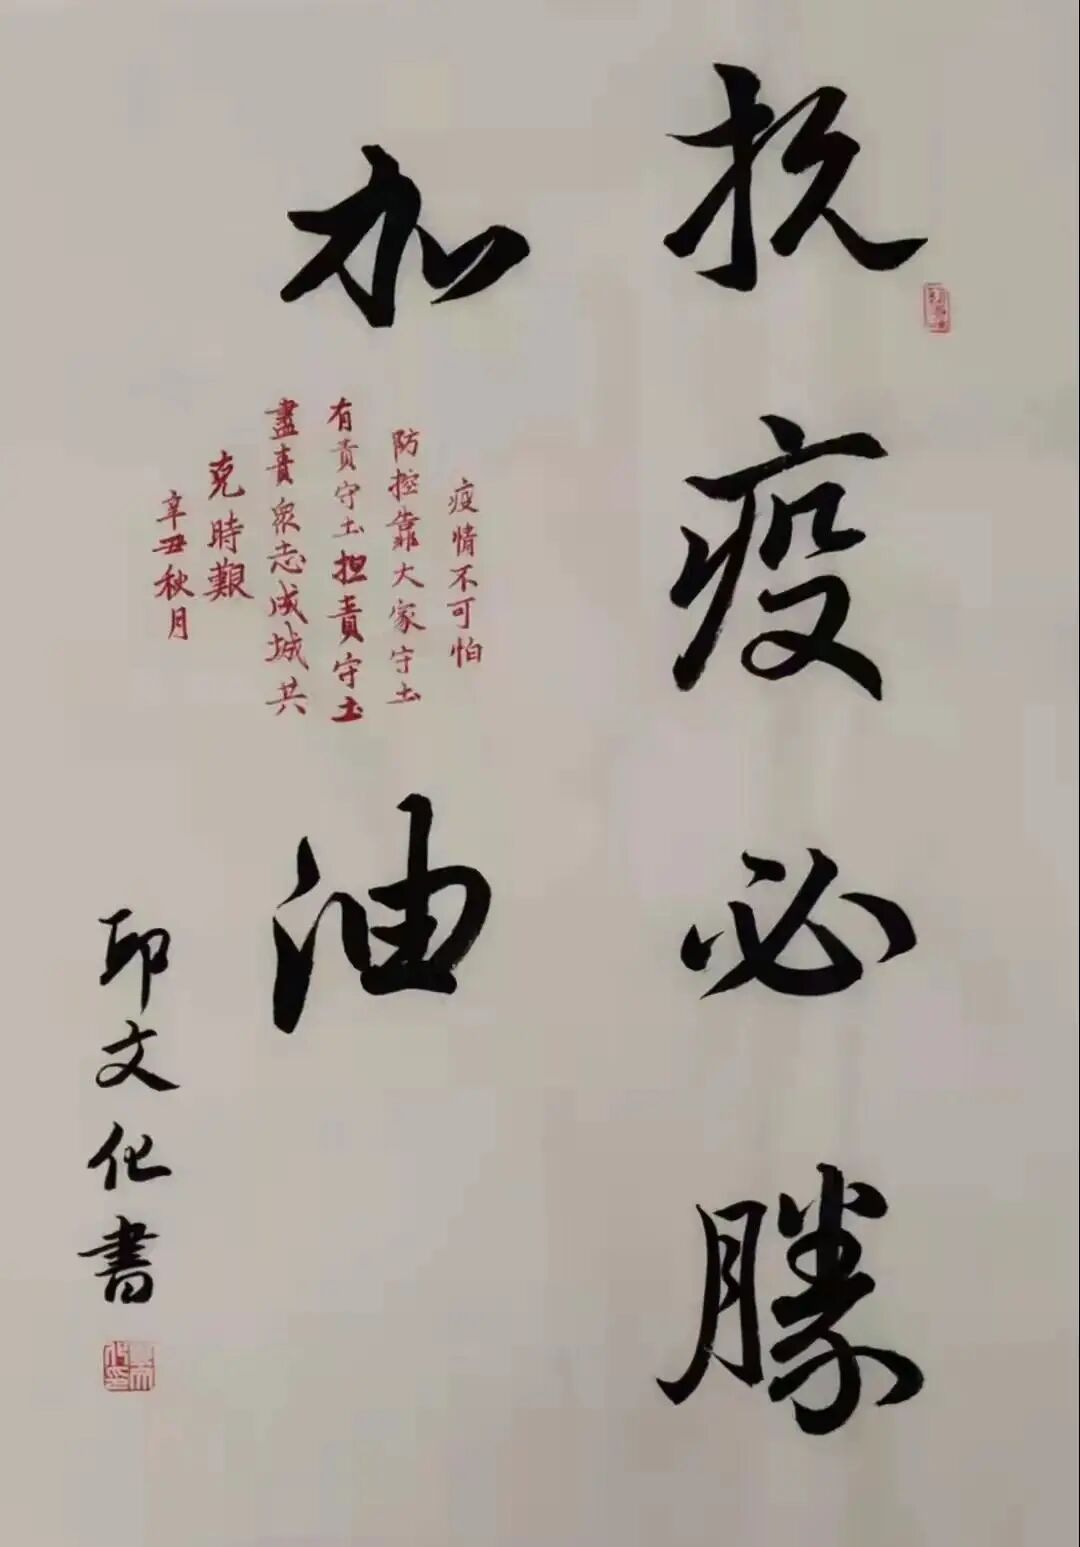 抗疫必勝
加油
疫情不可怕
防控靠大家守土
有责守土担責守土
盡責衆志成城共
克時艱
辛丑秋月
邱文化書